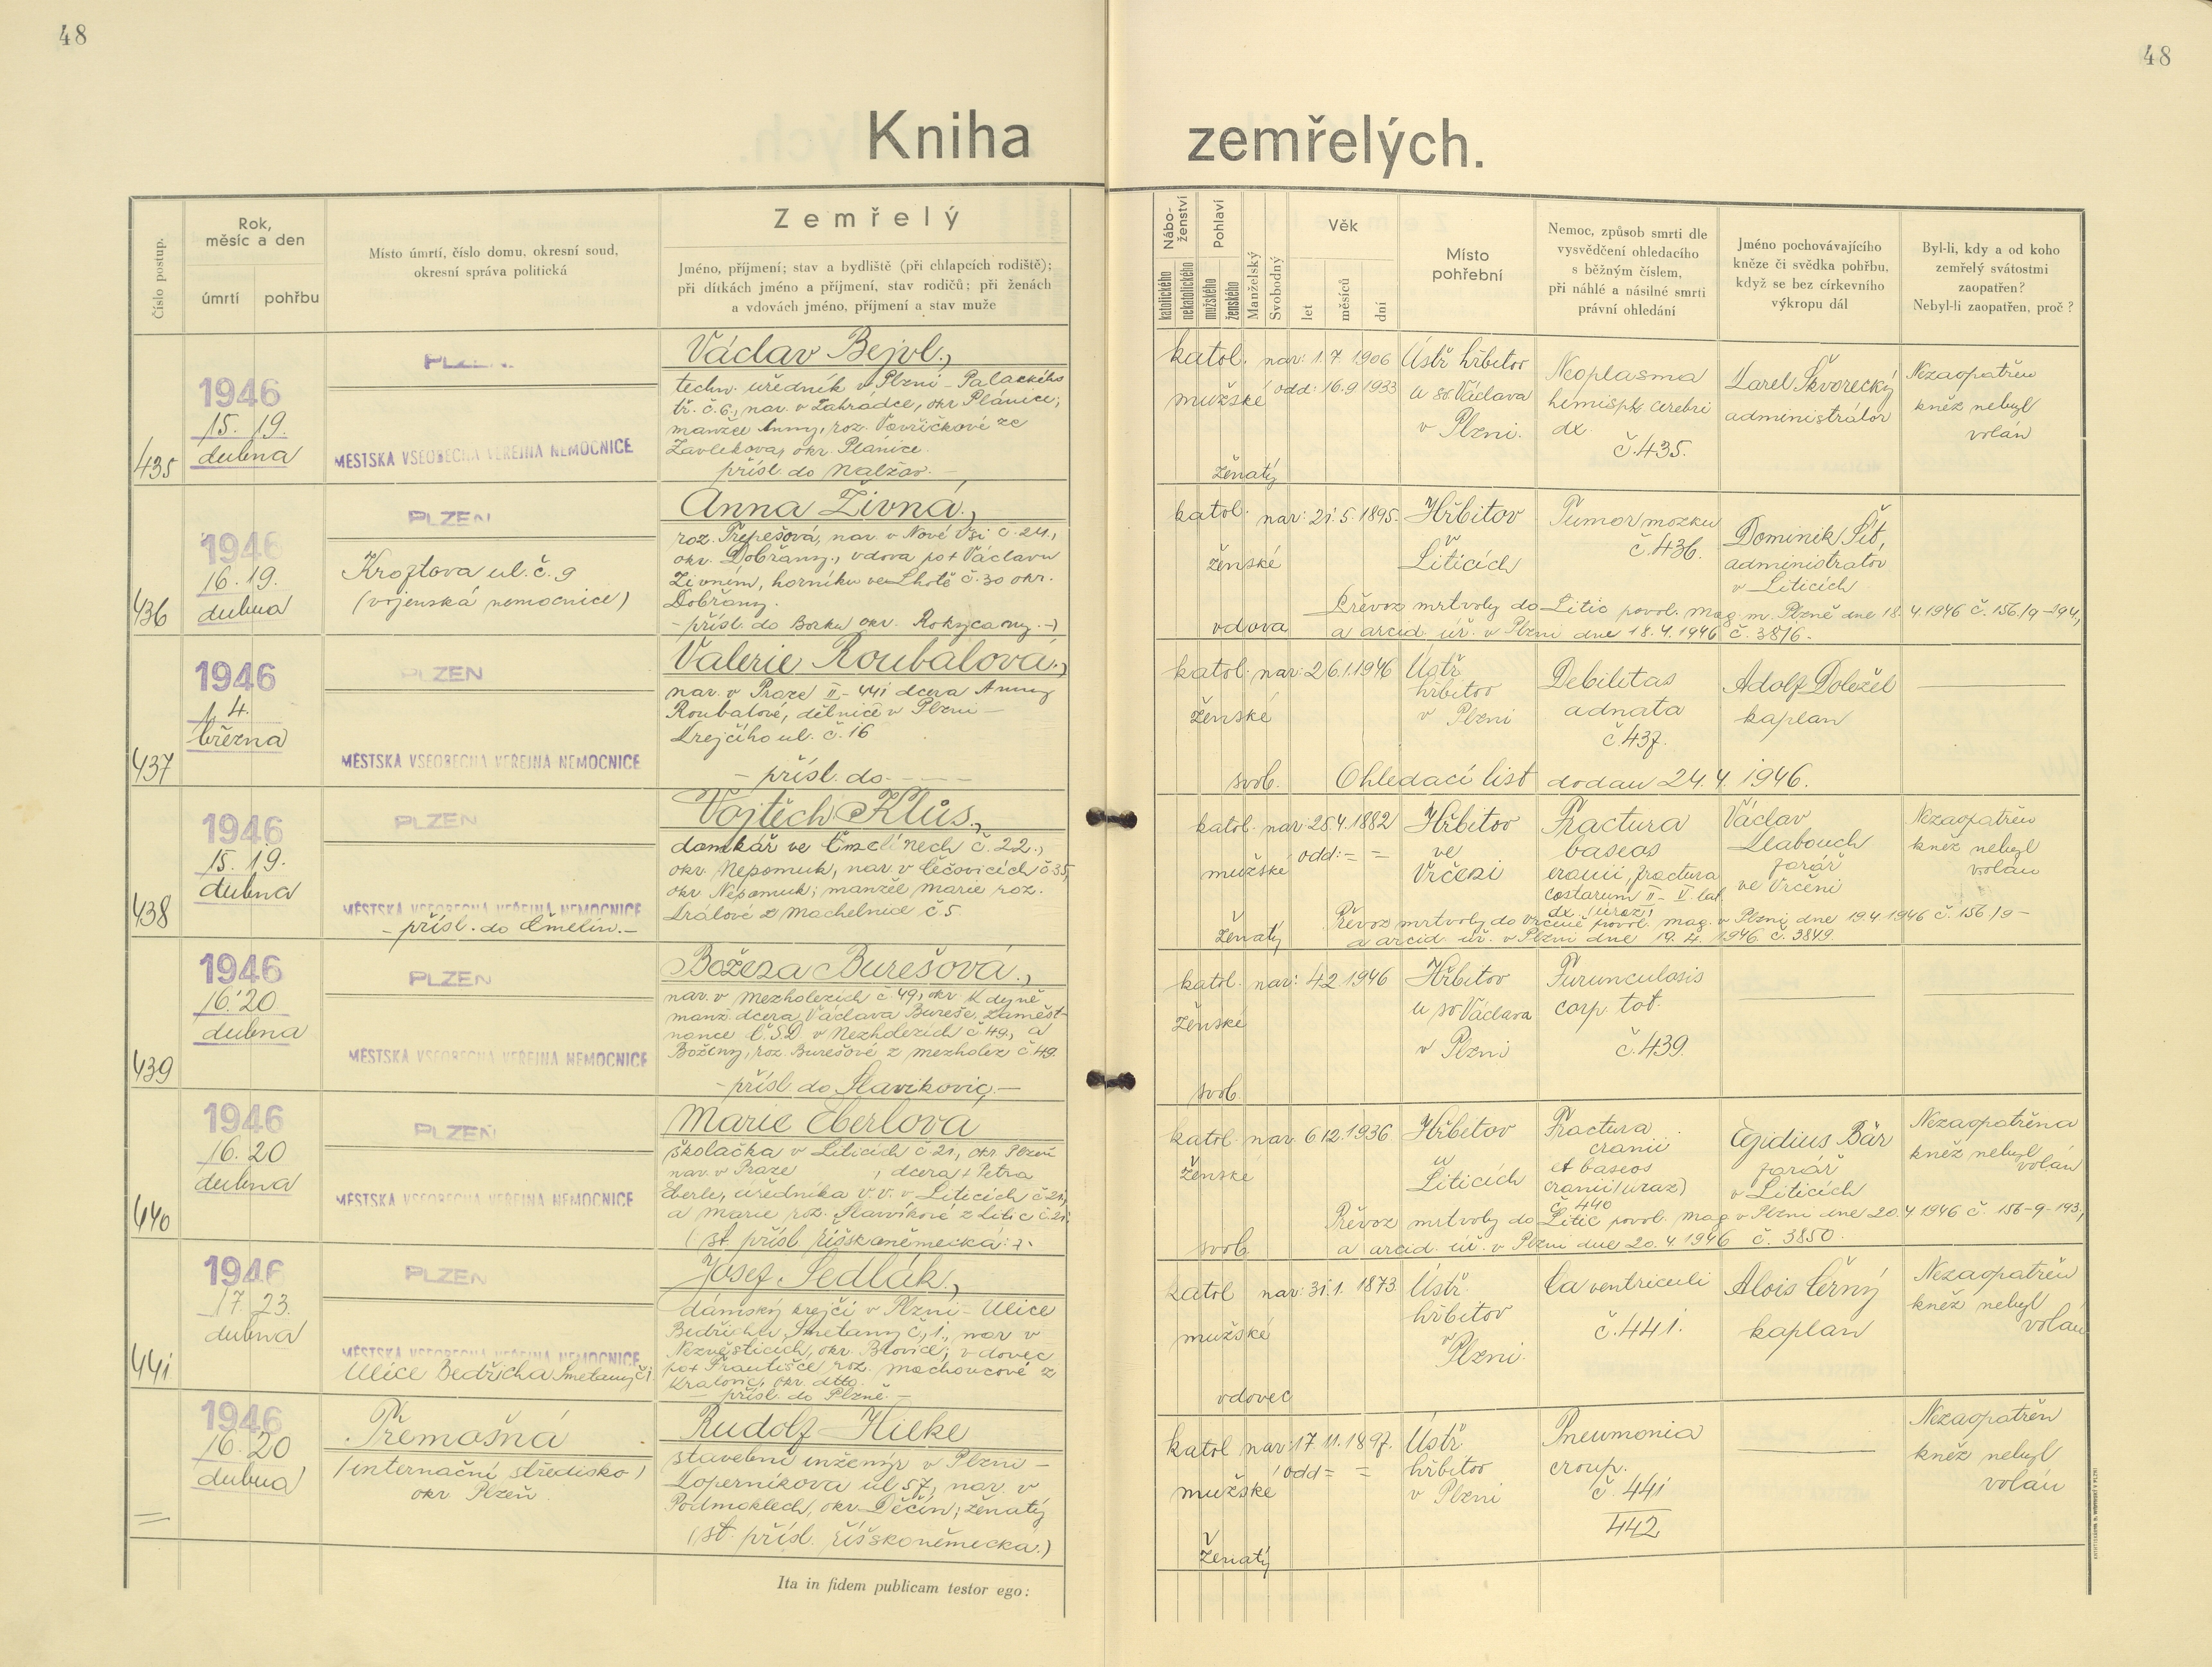 48
48
Kniha zemřelých.
Číslo postup.
Rok,
měsíc a den
úmrtí
pohřbu
Místo úmrtí, číslo domu, okresní soud,
okresní správa politická
Zemřelý
Jméno, příjmení; stav a bydliště (při chlapcích rodiště);
při dítkách jméno a příjmení, stav rodičů; při ženách
a vdovách jméno, příjmení a stav muže
Nábo-
ženství
katolického
nekatolického
Pohlaví
mužského
ženského
Manželský
Svobodný
Věk
let
měsíců
dní
Místo
pohřební
Nemoc, způsob smrti dle
vysvědčení ohledacího
s běžným číslem,
při náhlé a násilné smrti
právní ohledání
Jméno pochovávajícího
kněze či svědka pohřbu,
když se bez církevního
výkropu dál
Byl-li, kdy a od koho
zemřelý svátostmi
zaopatřen?
Nebyl-li zaopatřen, proč?
435
1946
15. 19.
dubna
PLZEŇ
MĚSTSKÁ VŠEOBECNÁ VEŘEJNÁ NEMOCNICE
Václav Bejvl.,
techn. úředník v Plzni - Palackého
tř. č. 6., nar. v Zahrádce, okr. Plánice;
manžel Anny, roz. Vavřičkové ze
Zavlekova, okr. Plánice.
přísl. do Nalžov. -
katol.
mužské
ženatý
nar: 1. 7. 1906
odd: 16. 9 1933
Ústř hřbitov
u sv Václava
v Plzni.
Neoplasma
hemisph. cerebri
dx.
č. 435.
Karel Škvorecký
administrátor
Nezaopatřen
kněz nebyl
volán
436
1946
16. 19.
dubna
PLZEŇ
ul. č. 9
(vojenská nemocnice)
Anna Živná.,
roz. Trepešová, nar. v Nové Vsi č. 24.,
okr. Dobřany., vdova po + Václavu
Živném, horníku ve Lhotě č. 30 okr.
Dobřany.
- přísl. do Borku okr. Rokycany. -)
katol.
ženské
vdova
nar: 21. 5. 1895.
Hřbitov
v
Liticích
Tumor mozku
č. 436.
Dominik Šít,
administrátor
v Liticích
Převoz mrtvoly do Litic povol. mag. m. Plzně dne 18. 4. 1946 č. 156/9-294,
a arcid. úř. v Plzni dne 18. 4. 1946 č. 3816.
437
1946
1. 4.
března
PLZEŇ
MĚSTSKÁ VŠEOBECNÁ VEŘEJNÁ NEMOCNICE
Valerie Roubalová.,
nar. v Praze II - 441 dcera Anny
Roubalové, dělnice v Plzni -
Krejčího ul. č. 16
- přísl. do - - - -
katol.
ženské
svob.
nar: 26. 1. 1946
Ústř
hřbitov
v Plzni
Debilitas
adnata
č. 437.
Adolf Doležel
kaplan
Ohledací list dodán 24. 4. 1946.
438
1946
15. 19.
dubna
PLZEŇ
MĚSTSKÁ VŠEOBECNÁ VEŘEJNÁ NEMOCNICE
- přísl. do Čmelín. -
Vojtěch Klůs.,
domkář ve Čmelínech č. 22.,
okr. Nepomuk, nar. v Čečovicích č 35,
okr Nepomuk; manžel Marie roz.
Králové z Machelnice č. 5
katol.
mužské
ženatý
nar 28. 4. 1882
odd: = =
Hřbitov
ve
Vrčeni
Fractura
baseos
cranii, fractura
costarum II - V lat.
dx. (úraz)
Václav
Leabouch
farář
ve Vrčeni
Nezaopatřen
kněz nebyl
volán
Převoz mrtvoly do Vrčeně povol. mag. v Plzni dne 19. 4. 1946 č. 156/9 -
a arcid. úř. v Plzni dne 19. 4. 1946 č. 3849.
439
1946
16. 20
dubna
PLZEŇ
MĚSTSKÁ VŠEOBECNÁ VEŘEJNÁ NEMOCNICE
Božena Burešová.,
nar. v Mezholezích č 49, okr Kdyně
manž. dcera Václava Bureše, zaměst-
nance Č.S.D v Mezholezích č 49, a
Boženy, roz. Burešové z Mezholez č. 49.
- přísl. do Slavikovic. -
katol.
ženské
svob.
nar: 4 2 1946
Hřbitov
u sv Václava
v Plzni
Furunculosis
corp. tot.
č. 439.
440
1946
16. 20
dubna
PLZEŇ
MĚSTSKÁ VŠEOBECNÁ VEŘEJNÁ NEMOCNICE
Marie Eberlová
školačka v Liticích č 21, okr Plzeň
nar. v Praze , dcera + Petra
Eberle, úředníka v. v. v Liticích č 21,
a Marie roz. Slavíkové z Litic č. 21.
(st. přísl. říškoněmecká.)
katol.
ženské
svob.
nar. 6 12. 1936
Hřbitov
v
Liticích
Fractura
cranii
et baseos
cranii (úraz)
č. 440
Egidius Bär
farář
v Liticích
Nezaopatřena
kněz nebyl
volán
Převoz mrtvoly do Litic povol. mag v Plzni dne 20. 4 1946 č. 156-9-193,
a arcid. úř. v Plzni dne 20. 4. 1946 č. 3850.
441
1946
17. 23.
dubna
PLZEŇ
MĚSTSKÁ VŠEOBECNÁ VEŘEJNÁ NEMOCNICE
Ulice Bedřicha Smetany č 1.
Josef Sedlák.,
dámský krejčí v Plzni - Ulice
Bedřicha Smetany č. 1., nar v
Nezvěsticích, okr. Blovice; vdovec
po + Františce roz. Machovcové z
Kralovic, okr. dtto.
- přísl. do Plzně. -
katol
mužské
vdovec
nar: 31. 1. 1873
Ústř.
hřbitov
v
Plzni.
Ca ventriculi
č. 441.
Alois Černý
kaplan
Nezaopatřen
kněz nebyl
volán
=
1946
16. 20
dubna
Třemošná
(internační středisko)
okr Plzeň
Rudolf Hieke
stavební inženýr v Plzni -
Koperníkova ul 57, nar. v
Podmoklech, okr. Děčín; ženatý
(st. přísl. říškoněmecká.)
katol
mužské
ženatý
nar: 17 11. 1897.
odd = =
Ústř.
hřbitov
v Plzni
Pneumonia
croup.
č. 441
442
Nezaopatřen
kněz nebyl
volán
Ita in fidem publicam testor ego: